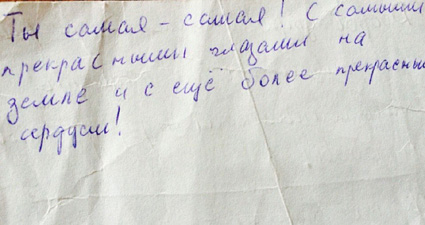 Ты самая - самая! С самыми
прекрасными глазами на
земле и с ещё более прекрасным
сердцем!